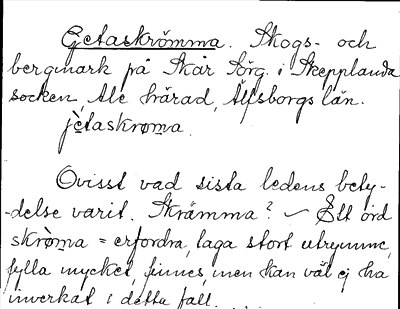 Getaskrömma. Skogs- och
bergmark på Skår Sörg. i Skepplanda
socken, Ale härad, Älfsborgs län.
jètaskrøma.
Ovisst vad sista ledens bety-
-delse varit. Skrämma? ~ Ett ord
skrøma = erfordra, taga stort utrymme,
fylla mycket, finnes, men kan väl ej ha
inverkat i detta fall.